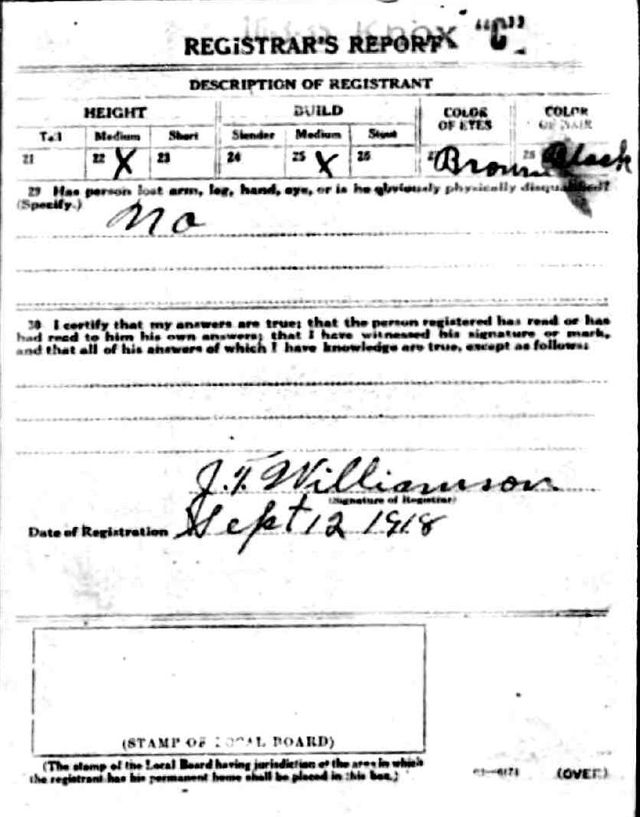 Knox
REGISTRAR'S REPORT "C"
DESCRIPTION OF REGISTRANT
HEIGHT BUILD COLOR OF EYES COLOR OF HAIR
Tall Medium Short Slender Medium Stout
21 22 X 23 24 25 X 26 Brown 28 Black
29 Has person lost arm, leg, hand, eye, or is he obviously physically disqualified?
(Specify.) No
30 I certify that my answers are true; that the person registered has read or has
had read to him his own answers; that I have witnessed his signature or mark,
and that all of his answers of which I have knowledge are true, except as follows:
J. T. Williamson
(Signature of Registrar)
Date of Registration Sept 12 1918
(STAMP OF LOCAL BOARD)
(The stamp of the Local Board having jurisdiction of the area in which
the registrant has his permanent home shall be placed in this box.)
(OVER)